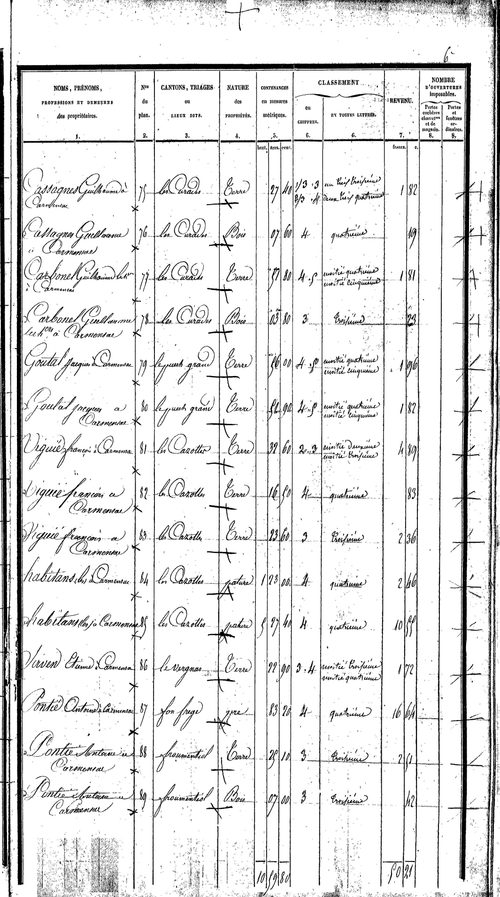 6
NOMS, PRÉNOMS, PROFESSIONS ET DEMEURES des propriétaires. Nos du plan. CANTONS, TRIAGES ou LIEUX DITS. NATURE des PROPRIÉTÉS. CONTENANCES en mesures métriques. CLASSEMENT en CHIFFRES. EN TOUTES LETTRES. REVENU. NOMBRE D'OUVERTURES imposables. Portes cochères charretières et de magasin. Portes et fenêtres ordinaires.
1. 2. 3. 4. 5. 6. 6. 7. 8. 9.
hect. ares. cent. francs. c.
Cassagnes Guillaume à 75 les Curades Terre 27 40 1/3 3 un tiers troisième 1 82
Carmensac 2/3 4 deux tiers quatrième
Cassagnes Guillaume 76 les Curades Bois 07 60 4 quatrième 49
à Carmensac
Carbonel Guillaume 77 les Curades Terre 80 4 5 moitié quatrième 1 81
à Carmensac moitié cinquième
Carbonel Guillaume 78 les Curades Bois 03 80 3 troisième 23
à Carmensac
Goutal Jacques à Carmensac 79 le puech grand Terre 56 00 4 5 moitié quatrième 1 96
moitié cinquième
Goutal Jacques à 80 le puech grand Terre 51 90 4 5 moitié quatrième 1 82
Carmensac moitié cinquième
Viguié françois à Carmensac 81 les Carottes Terre 32 60 2 3 moitié deuxième 4 89
moitié troisième
Viguié françois à 82 les Carottes Terre 16 50 4 quatrième 83
Carmensac
Viguié françois à 83 les Carottes Terre 23 60 3 troisième 2 36
Carmensac
habitans, les à Carmensac 84 les Carottes pature 1 23 00 4 quatrième 2 46
habitans, les à Carmensac 85 les Carottes pature 5 27 40 4 quatrième 10 55
Sirven Etienne à Carmensac 86 le vergnas Terre 22 90 3 4 moitié troisième 1 72
moitié quatrième
Pontié Antoine à Carmensac 87 fon frege pré 83 20 4 quatrième 16 64
Pontié Antoine à 88 froumentiol Terre 25 10 3 troisième 2 51
Carmensac
Pontié Antoine à 89 froumentiol Bois 07 00 3 troisième 42
Carmensac
10 59 80 50 21